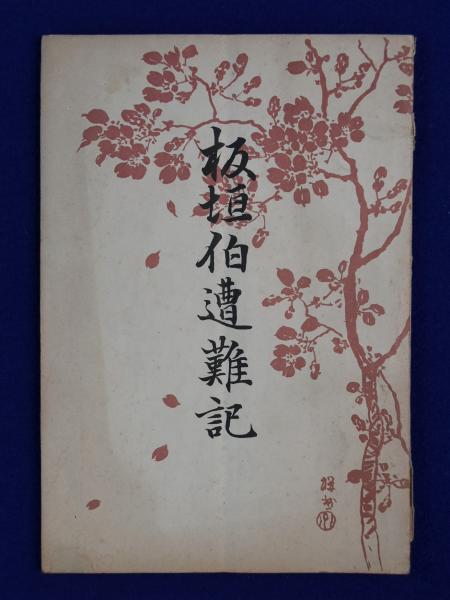 板垣伯遭難記